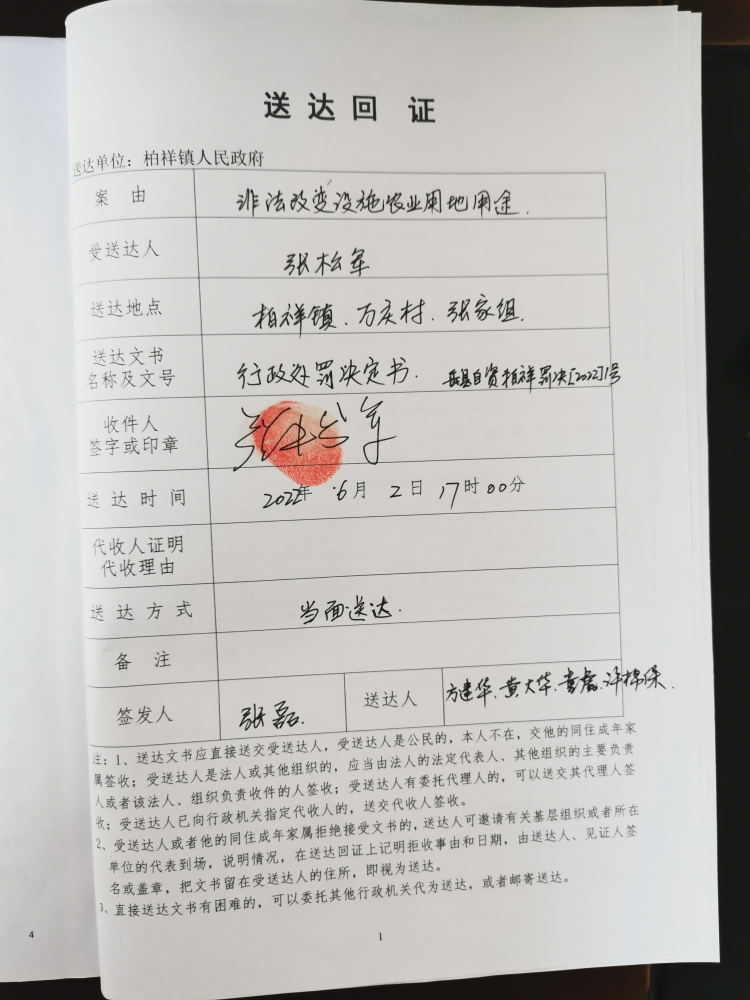 送达回证
送达单位：柏祥镇人民政府
案 由 非法改变设施农业用地用途.
受送达人 张松军
送达地点 柏祥镇、万庆村、张家组.
送达文书
名称及文号 行政处罚决定书. 岳县自资柏祥罚决[2022]1号
收件人
签字或印章 张松军
送达时间 2022年 6月 2日 17时00分
代收人证明
代收理由
送达方式 当面送达.
备 注
签发人 张磊. 送达人 方建华、黄大华、
注：1、送达文书应直接送交受送达人，受送达人是公民的，本人不在，交他的同住成年家
属签收；受送达人是法人或其他组织的，应当由法人的法定代表人、其他组织的主要负责
人或者该法人、组织负责收件的人签收；受送达人有委托代理人的，可以送交其代理人签
收；受送达人已向行政机关指定代收人的，送交代收人签收。
2、受送达人或者他的同住成年家属拒绝接受文书的，送达人可邀请有关基层组织或者所在
单位的代表到场，说明情况，在送达回证上记明拒收事由和日期，由送达人、见证人签
名或盖章，把文书留在受送达人的住所，即视为送达。
3、直接送达文书有困难的，可以委托其他行政机关代为送达，或者邮寄送达。
4
1